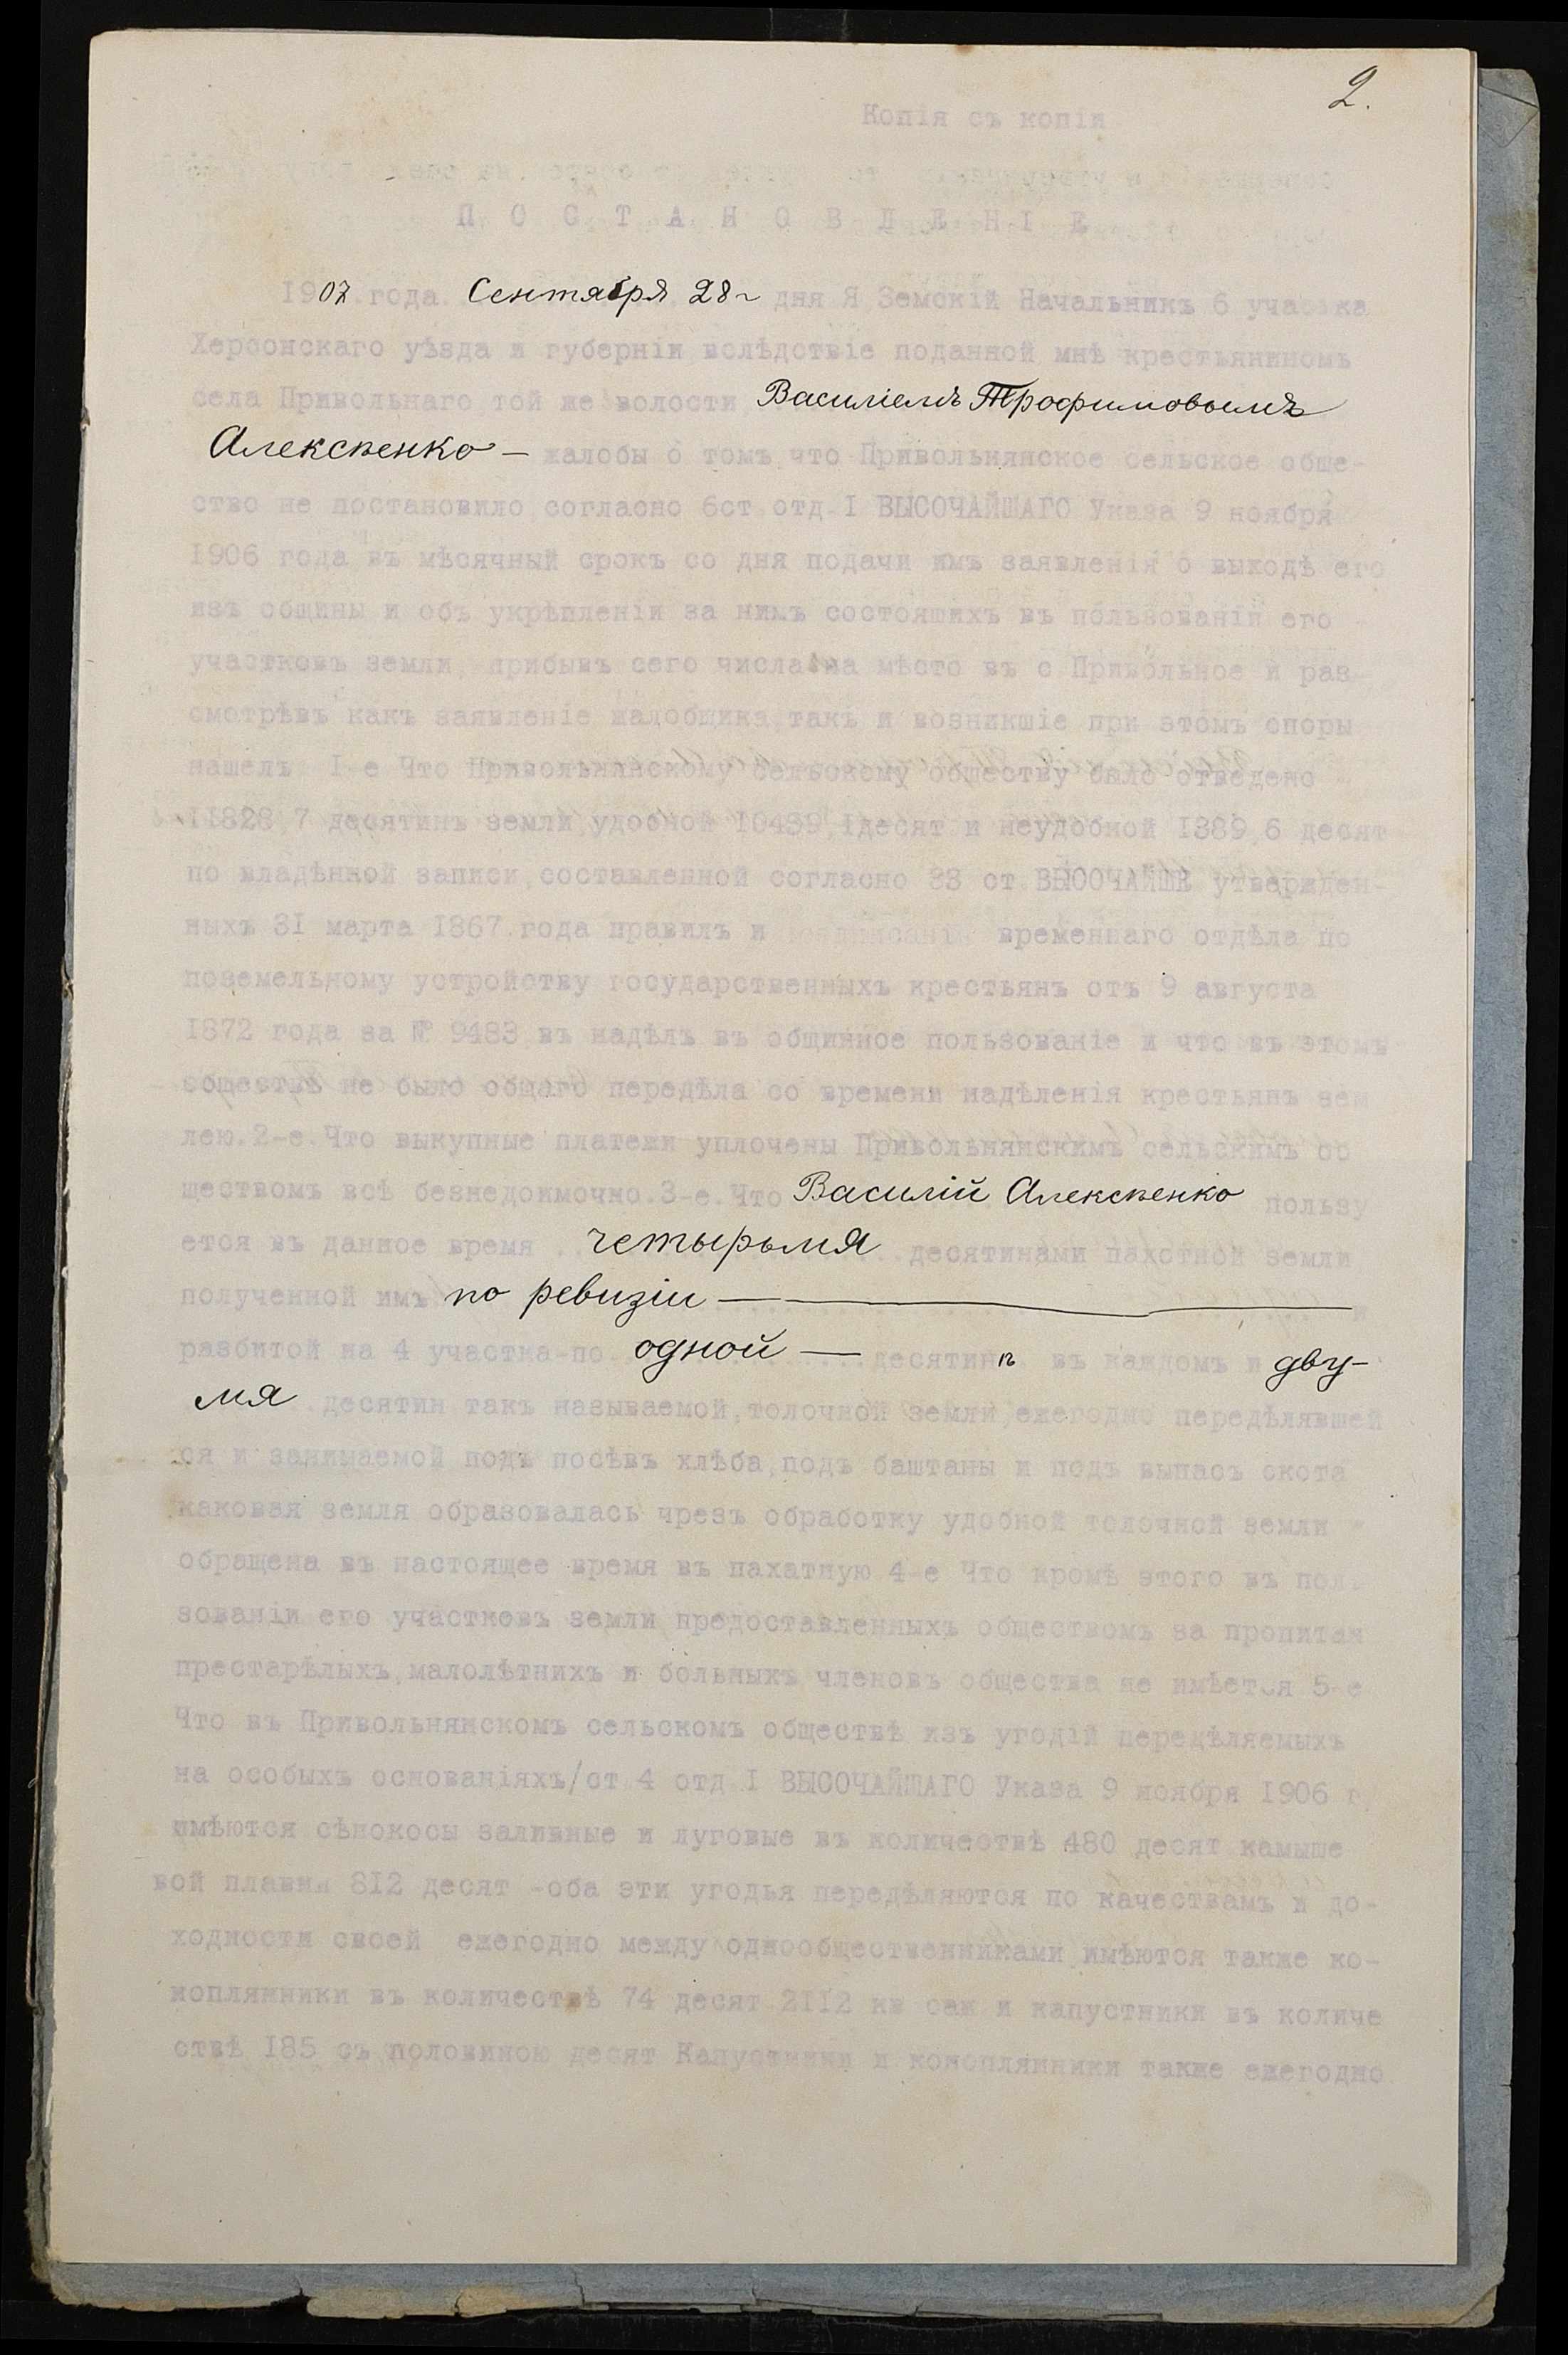 2.
Копія съ копіи
П О С Т А Н О В Л Е Н І Е
1907 года Сентября 28 дня Я Земскій Начальникъ 6 участка
Херсонскаго уѣзда и губерніи вслѣдствіе поданной мнѣ крестьяниномъ
села Привольнаго той же волости Василіемъ Трофимовымъ
Алексѣенко – жалобы о томъ что Привольнянское сельское обще-
ство не постановило согласно 6ст отд I ВЫСОЧАЙШАГО Указа 9 ноября
1906 года въ мѣсячный срокъ со дня подачи имъ заявленія о выходѣ его
изъ общины и объ укрѣпленіи за нимъ состоящихъ въ пользованіи его
участковъ земли, прибывъ сего числа на мѣсто въ с Привольное и раз-
смотрѣвъ какъ заявленіе жалобщика, такъ и возникшіе при этомъ споры
нашелъ I-е Что Привольнянскому сельскому обществу было отведено
11828,7 десятинъ земли, удобной 10439,1десят и неудобной 1389,6 десят
по владѣнной записи, составленной согласно 33 ст ВЫСОЧАЙШЕ утвержден-
ныхъ 31 марта 1867 года правилъ и временнаго отдѣла по
поземельному устройству государственныхъ крестьянъ отъ 9 августа
1872 года за № 9483 въ надѣлъ въ общинное пользованіе и что въ этомъ
обществѣ не было общаго передѣла со времени надѣленія крестьянъ зем
лею. 2-е. Что выкупные платежи уплочены Привольнянскимъ сельскимъ об
ществомъ всѣ безнедоимочно. 3-е. Что Василій Алексѣенко пользу
ется въ данное время четырьмя десятинами пахотной земли
полученной имъ по ревизіи — и
разбитой на 4 участка-по одной — десятинѣ въ каждомъ и дву-
мя десятин такъ называемой, толочной земли, ежегодно передѣлявшей
ся и занимаемой подъ посѣвъ хлѣба, подъ баштаны и подъ выпасъ скота
каковая земля образовалась чрезъ обработку удобной толочной земли
обращена въ настоящее время въ пахатную 4-е Что кромѣ этого въ поль
зованіи его участковъ земли предоставленныхъ обществомъ за пропитан
престарѣлыхъ, малолѣтнихъ и больныхъ членовъ общества не имѣется 5-е
Что въ Привольнянскомъ сельскомъ обществѣ изъ угодій передѣляемыхъ
на особыхъ основаніяхъ/ст 4 отд I ВЫСОЧАЙШАГО Указа 9 ноября 1906 г.
имѣются сѣнокосы заливные и луговые въ количествѣ 480 десят камыше
вой плавни 812 десят -оба эти угодья передѣляются по качествамъ и до-
ходности своей ежегодно между однообщественниками, имѣются также ко-
нопляники въ количествѣ 74 десят 2112 кв саж и капустники въ количе
ствѣ 185 съ половиною десят Капустники и конопляники также ежегодно